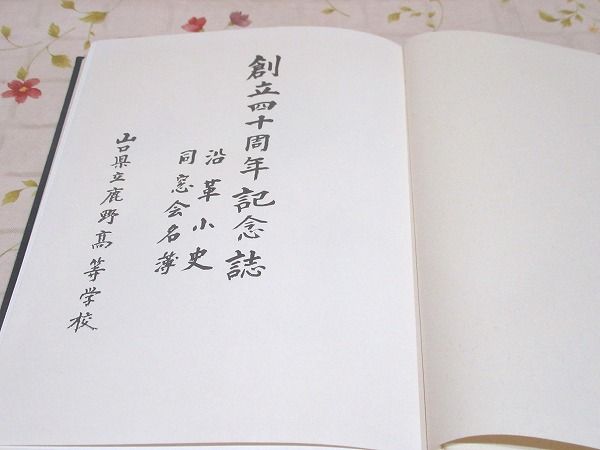 創立四十周年記念誌
沿革小史
同窓会名簿
山口県立鹿野高等学校